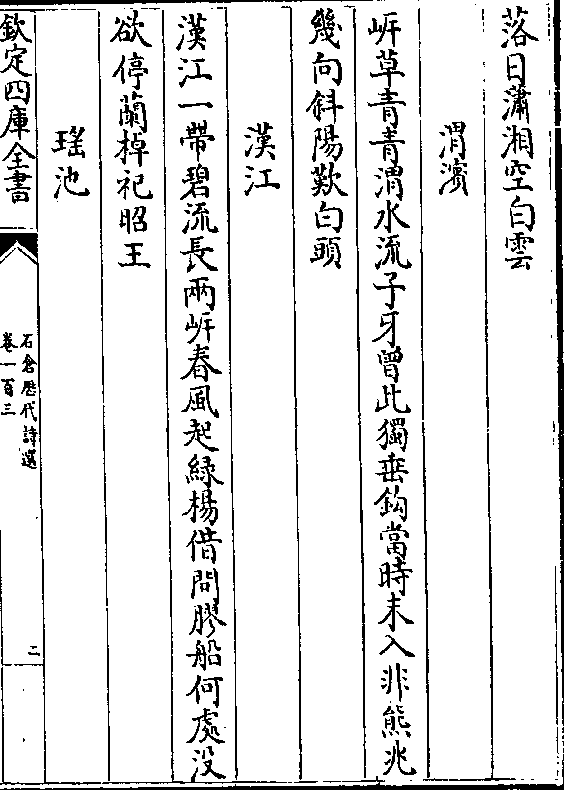 落日瀟湘空白雲
渭濱
岍草青青渭水流子牙曾此獨垂鈎當時未入非熊兆
幾向斜陽歎白頭
漢江
漢江一帶碧流長兩岍春風起綠楊借問膠船何處没
欲停蘭棹祀昭王
瑤池
欽定四庫全書
石倉歷代詩選
卷一百三
二